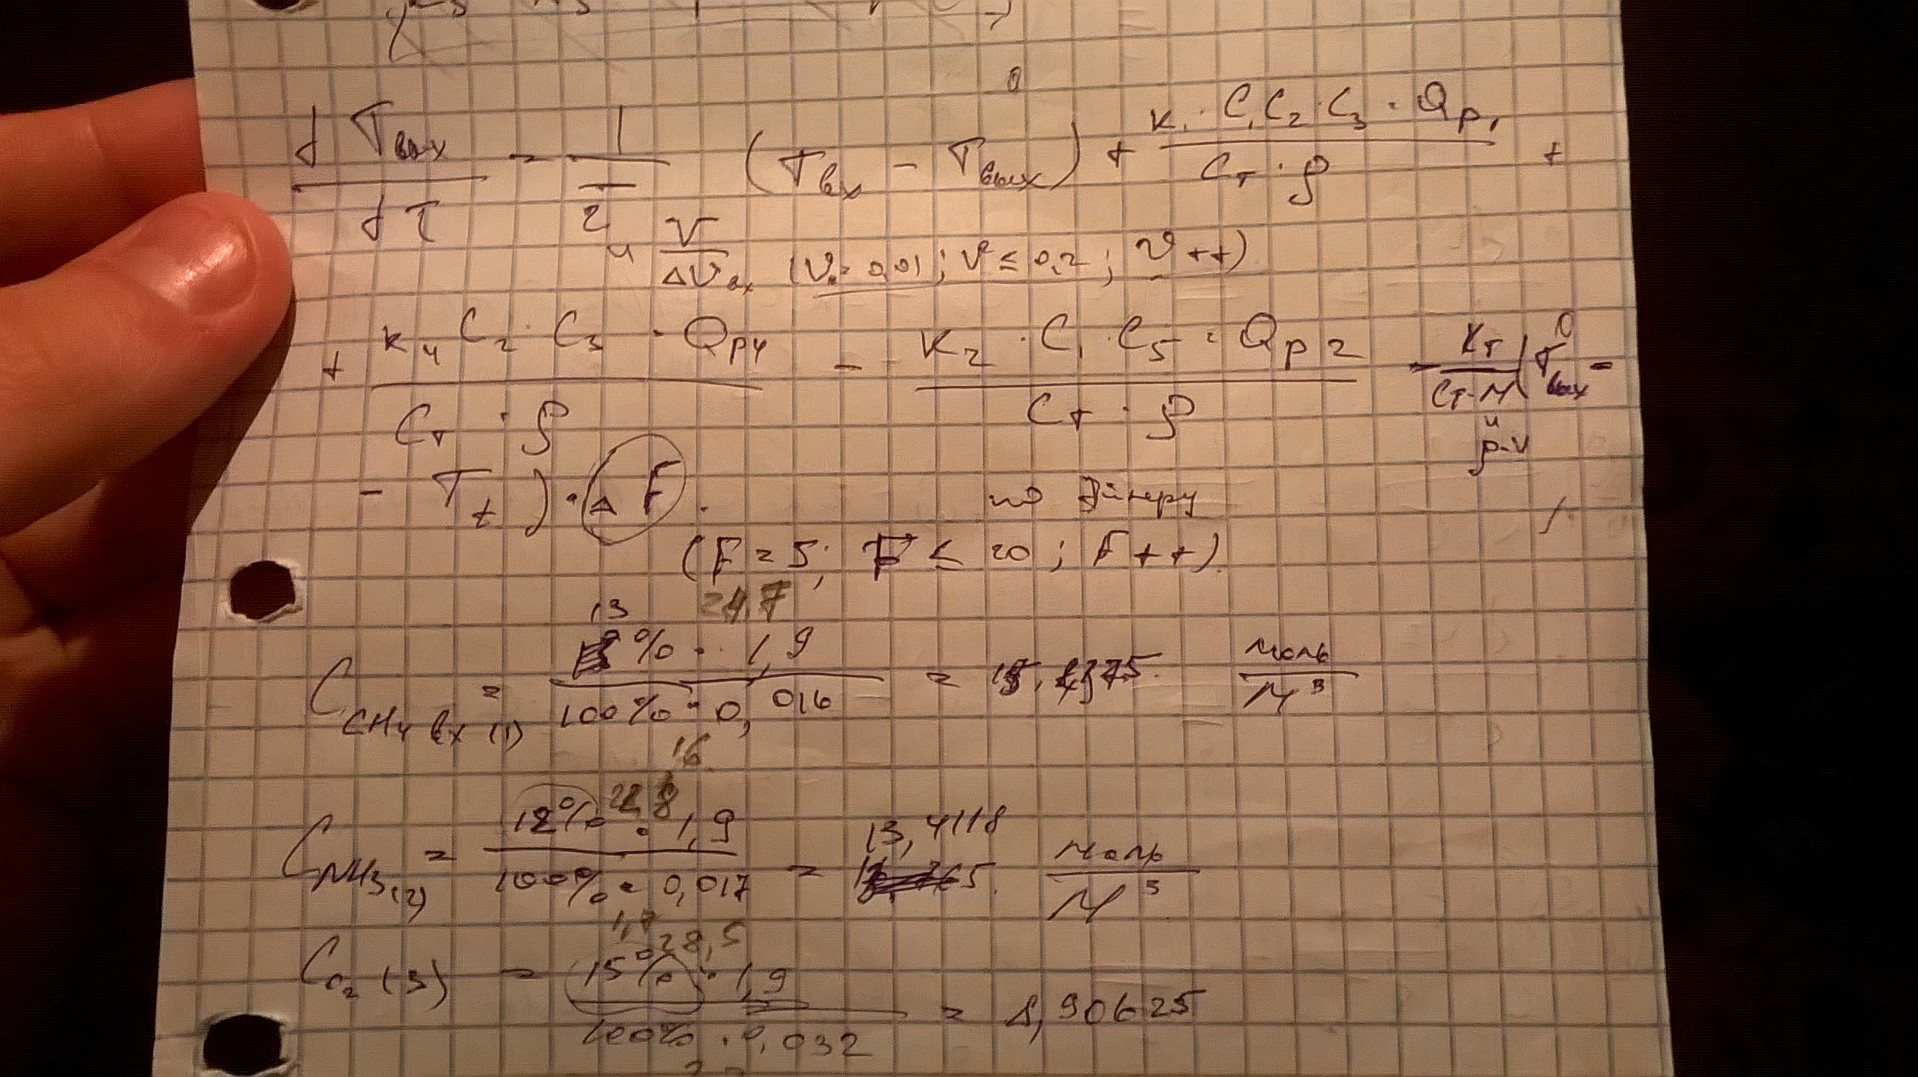 d Tвых / dτ = 1 / τ (Tвх - Tвых) + K₁ · C₁ C₂ · C₃ · Qp₁ / Cт · ρ +
V / ΔVвх (V₀ = 0,01; V ≤ 0,2; V++)
+ K₄ C₂ · C₃ · Qp₄ / Cт · ρ - K₂ · C₁ · C₅ · Qp₂ / Cт · ρ - Kт / Cт · M (Tвых -
ρ · V
- Tt) · ΔF. по Эйлеру
(F = 5; F ≤ 20; F++).
13 24,7
C CH4 вх (1) = % · 1,9 / 100% · 0,016 = моль / м³
16
C NH3 (2) = 12% · 1,9 / 100% · 0,017 = 13,4118 моль / м³
1,7 28,5
C O2 (3) = 15% · 1,9 / 100% · 0,032 = 8,90625